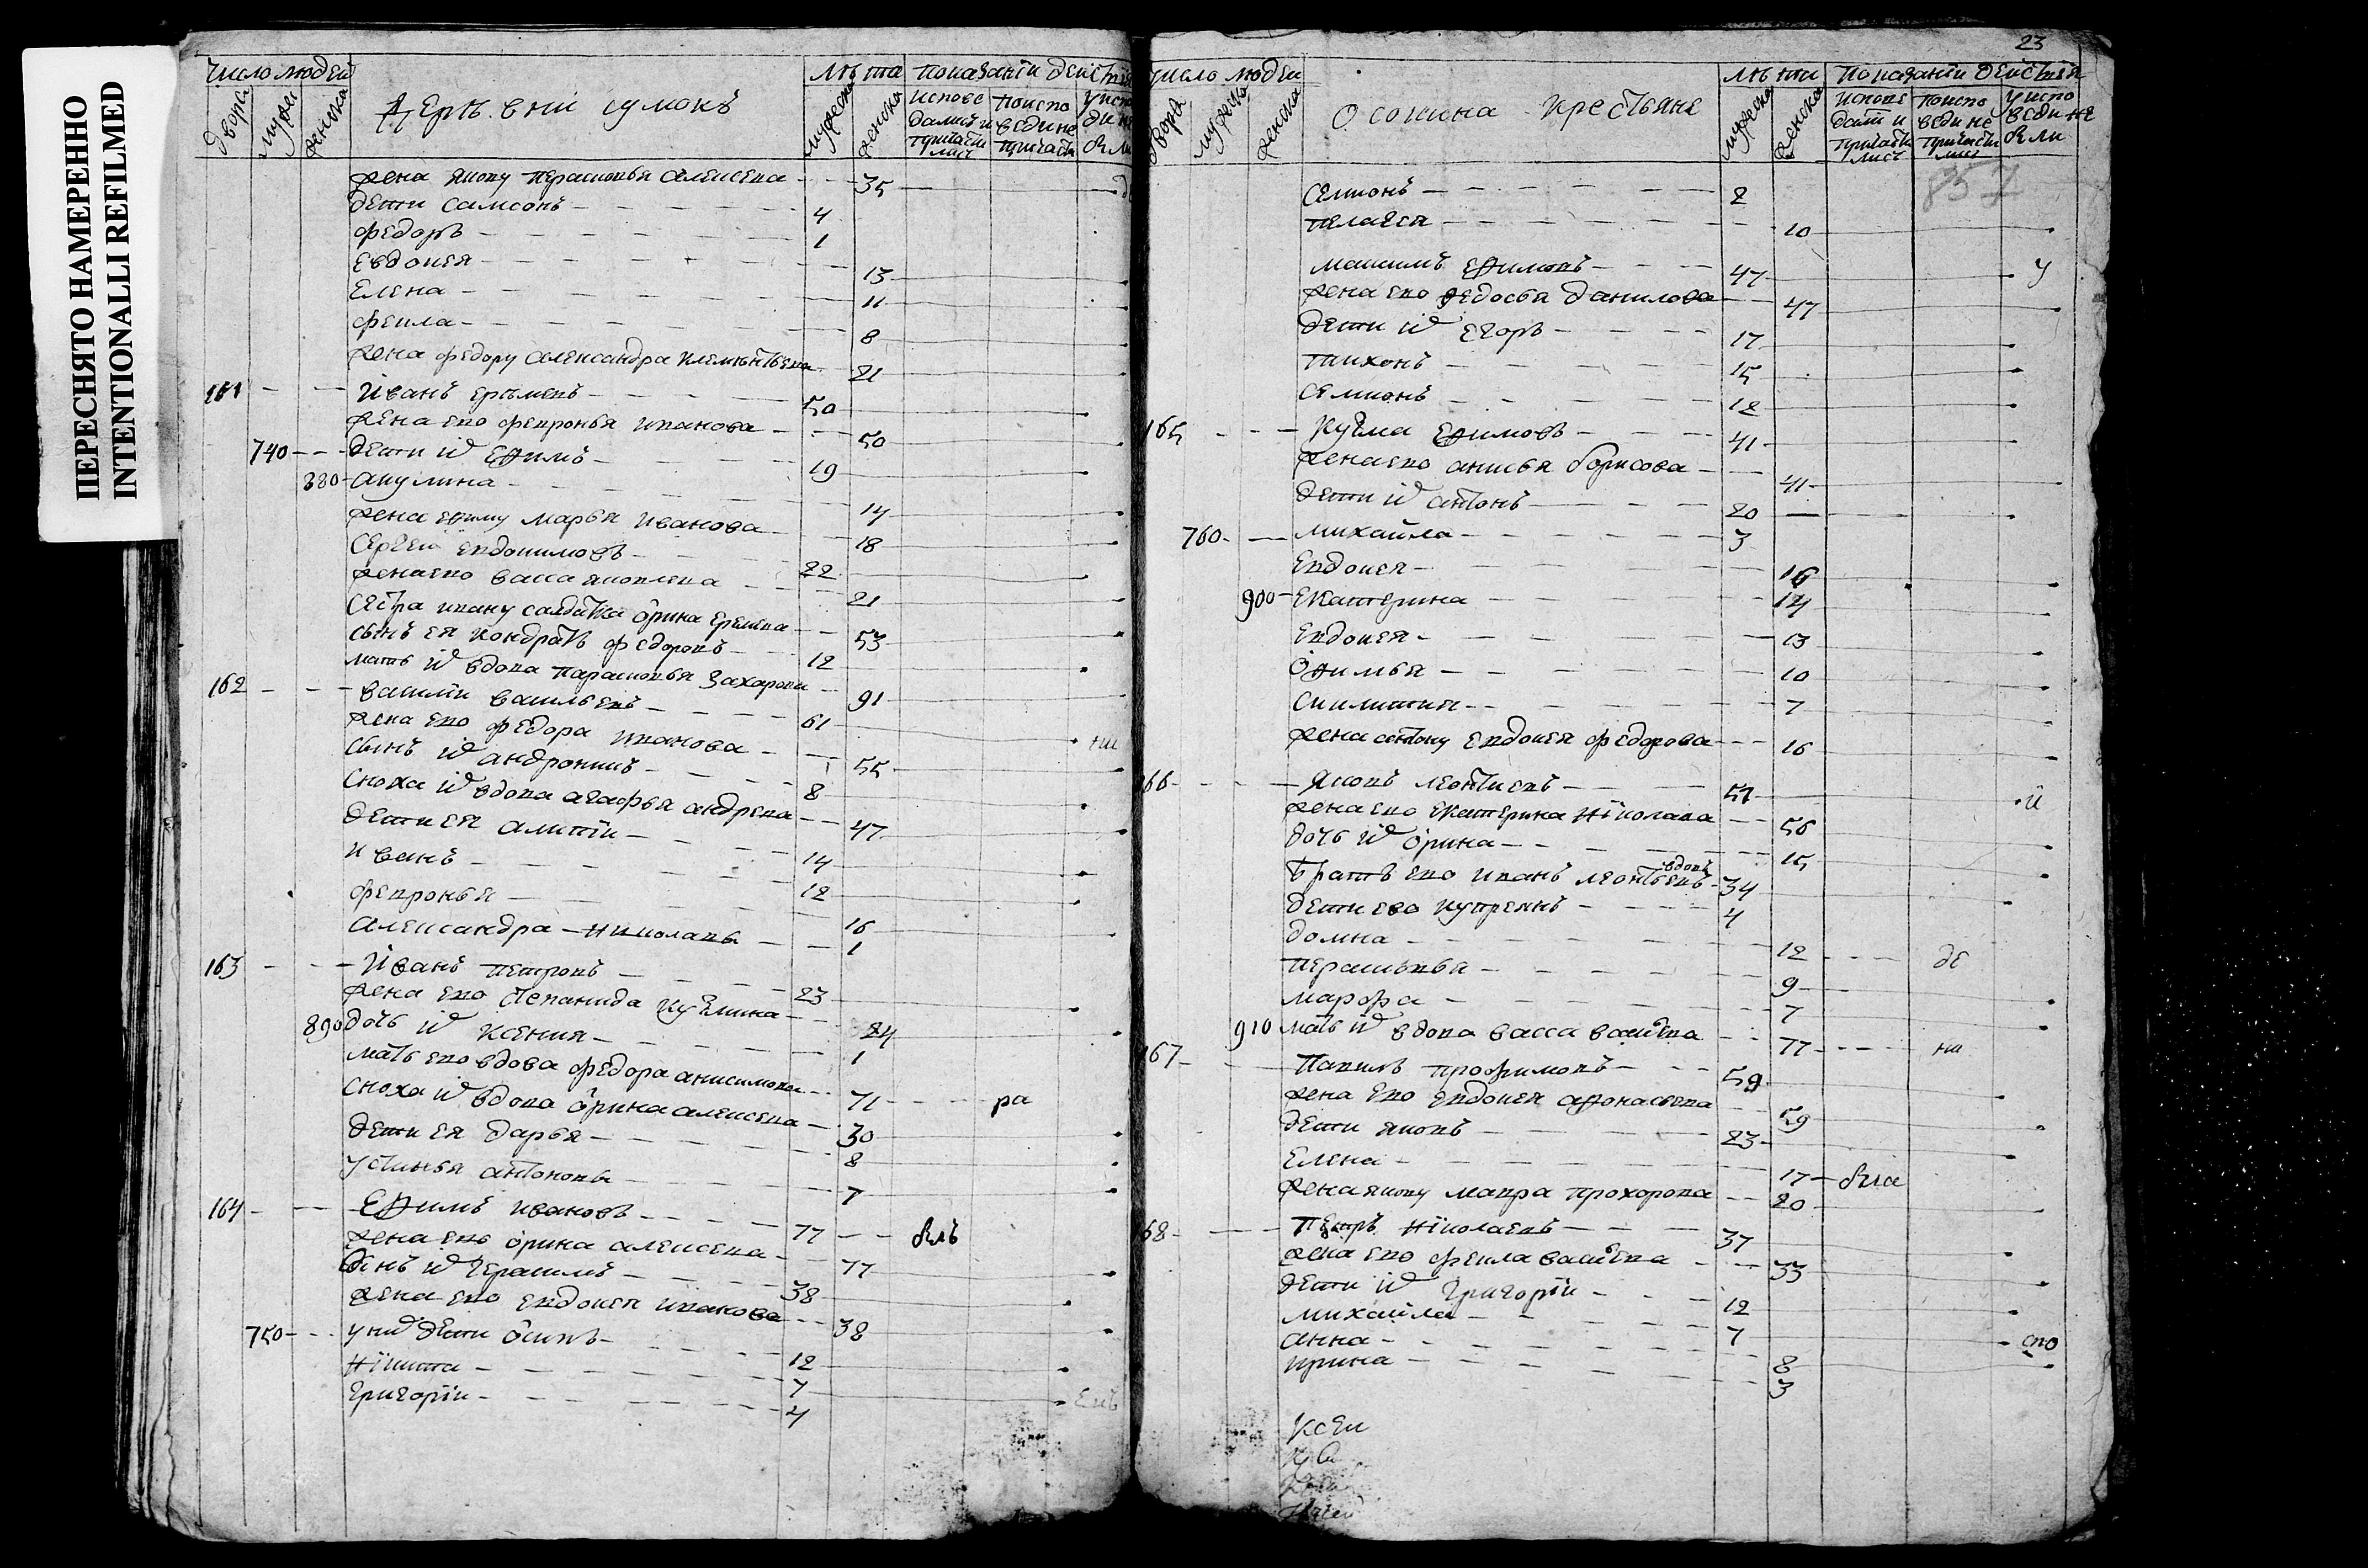 ПЕРЕСНЯТО НАМЕРЕННО
INTENTIONALLI REFILMED
Число людей
двора
мужеска
женска
Деревни
лѣта
мужеска
женска
показании действия
испове
дались и
причасти
лись
поиспо
веди не
причасти
жена якову перасковья алексева 35
дети самсонъ 4
федоръ 1
евдокея 13
елена 11
фекла 8
жена федору александра клементьева 21
161 Иванъ еремевъ 50
жена ево февронья иванова 50
740 дети их ефимъ 19
880 акулина 14
жена ефиму марья иванова 18
сергеи евдокимовъ 22
жена ево васса яковлева 21
сестра ивану салдатка орина еремева 53
сынъ ея кондратъ федоровъ 12
мать их вдова парасковья захарова 91
162 василии васильевъ 61
жена ево федора иванова 55
сынъ их андроникъ 8
сноха их вдова агафья андрева 47
дети ея алипии 14
иванъ 12
февронья 16
александра николавы 1
163 Иванъ петровъ 23
жена ево степанида кузмина 24
890 дочь их ксения 1
мать ево вдова федора анисимова 71 ра
сноха их вдова орина алексева 30
дети ея дарья 8
устинья антоновы 7
164 Ефимъ ивановъ 77
жена ево орина алексева 77
сынъ их герасимъ 38
жена ево евдокея иванова 38
750 у них дети осипъ 12
никита 7
григории 4
23
число людеи
двора
мужеска
женска
Осокина крестьяне
лѣта
мужеска
женска
показании действия
испове
дали и
причасти
лись
поиспо
веди не
причасти
лись
857
семионъ 2
пелагея 10
максимъ ефимовъ 47 у
жена ево федосья данилова 47
дети их егоръ 17
тихонъ 15
семионъ 12
165 Кузма ефимовъ 41
жена ево анисья борисова 41
дети их антонъ 20
760 михаила 3
евдокея 16
900 екатерина 14
евдокея 13
офимья 10
7
жена антону евдокея федорова 16
166 Яковъ леонтиевъ 57
жена ево екатерина николава 56
дочь их орина 15
братъ ево иванъ леонтьевъ вдовъ 34
дети ево купреянъ 4
домна 12 де
перасковья 9
марфа 7
910 мать их вдова васса васильева 77 на
167 Павилъ трофимовъ 59
жена ево евдокея афонасьева 59
дети яковъ 23
елена 17
жена якову мавра прохорова 20
168 Петръ николаевъ 37
жена ево фекла васильева 33
дети их григории 12
михаила 7
анна 8
ирина 3